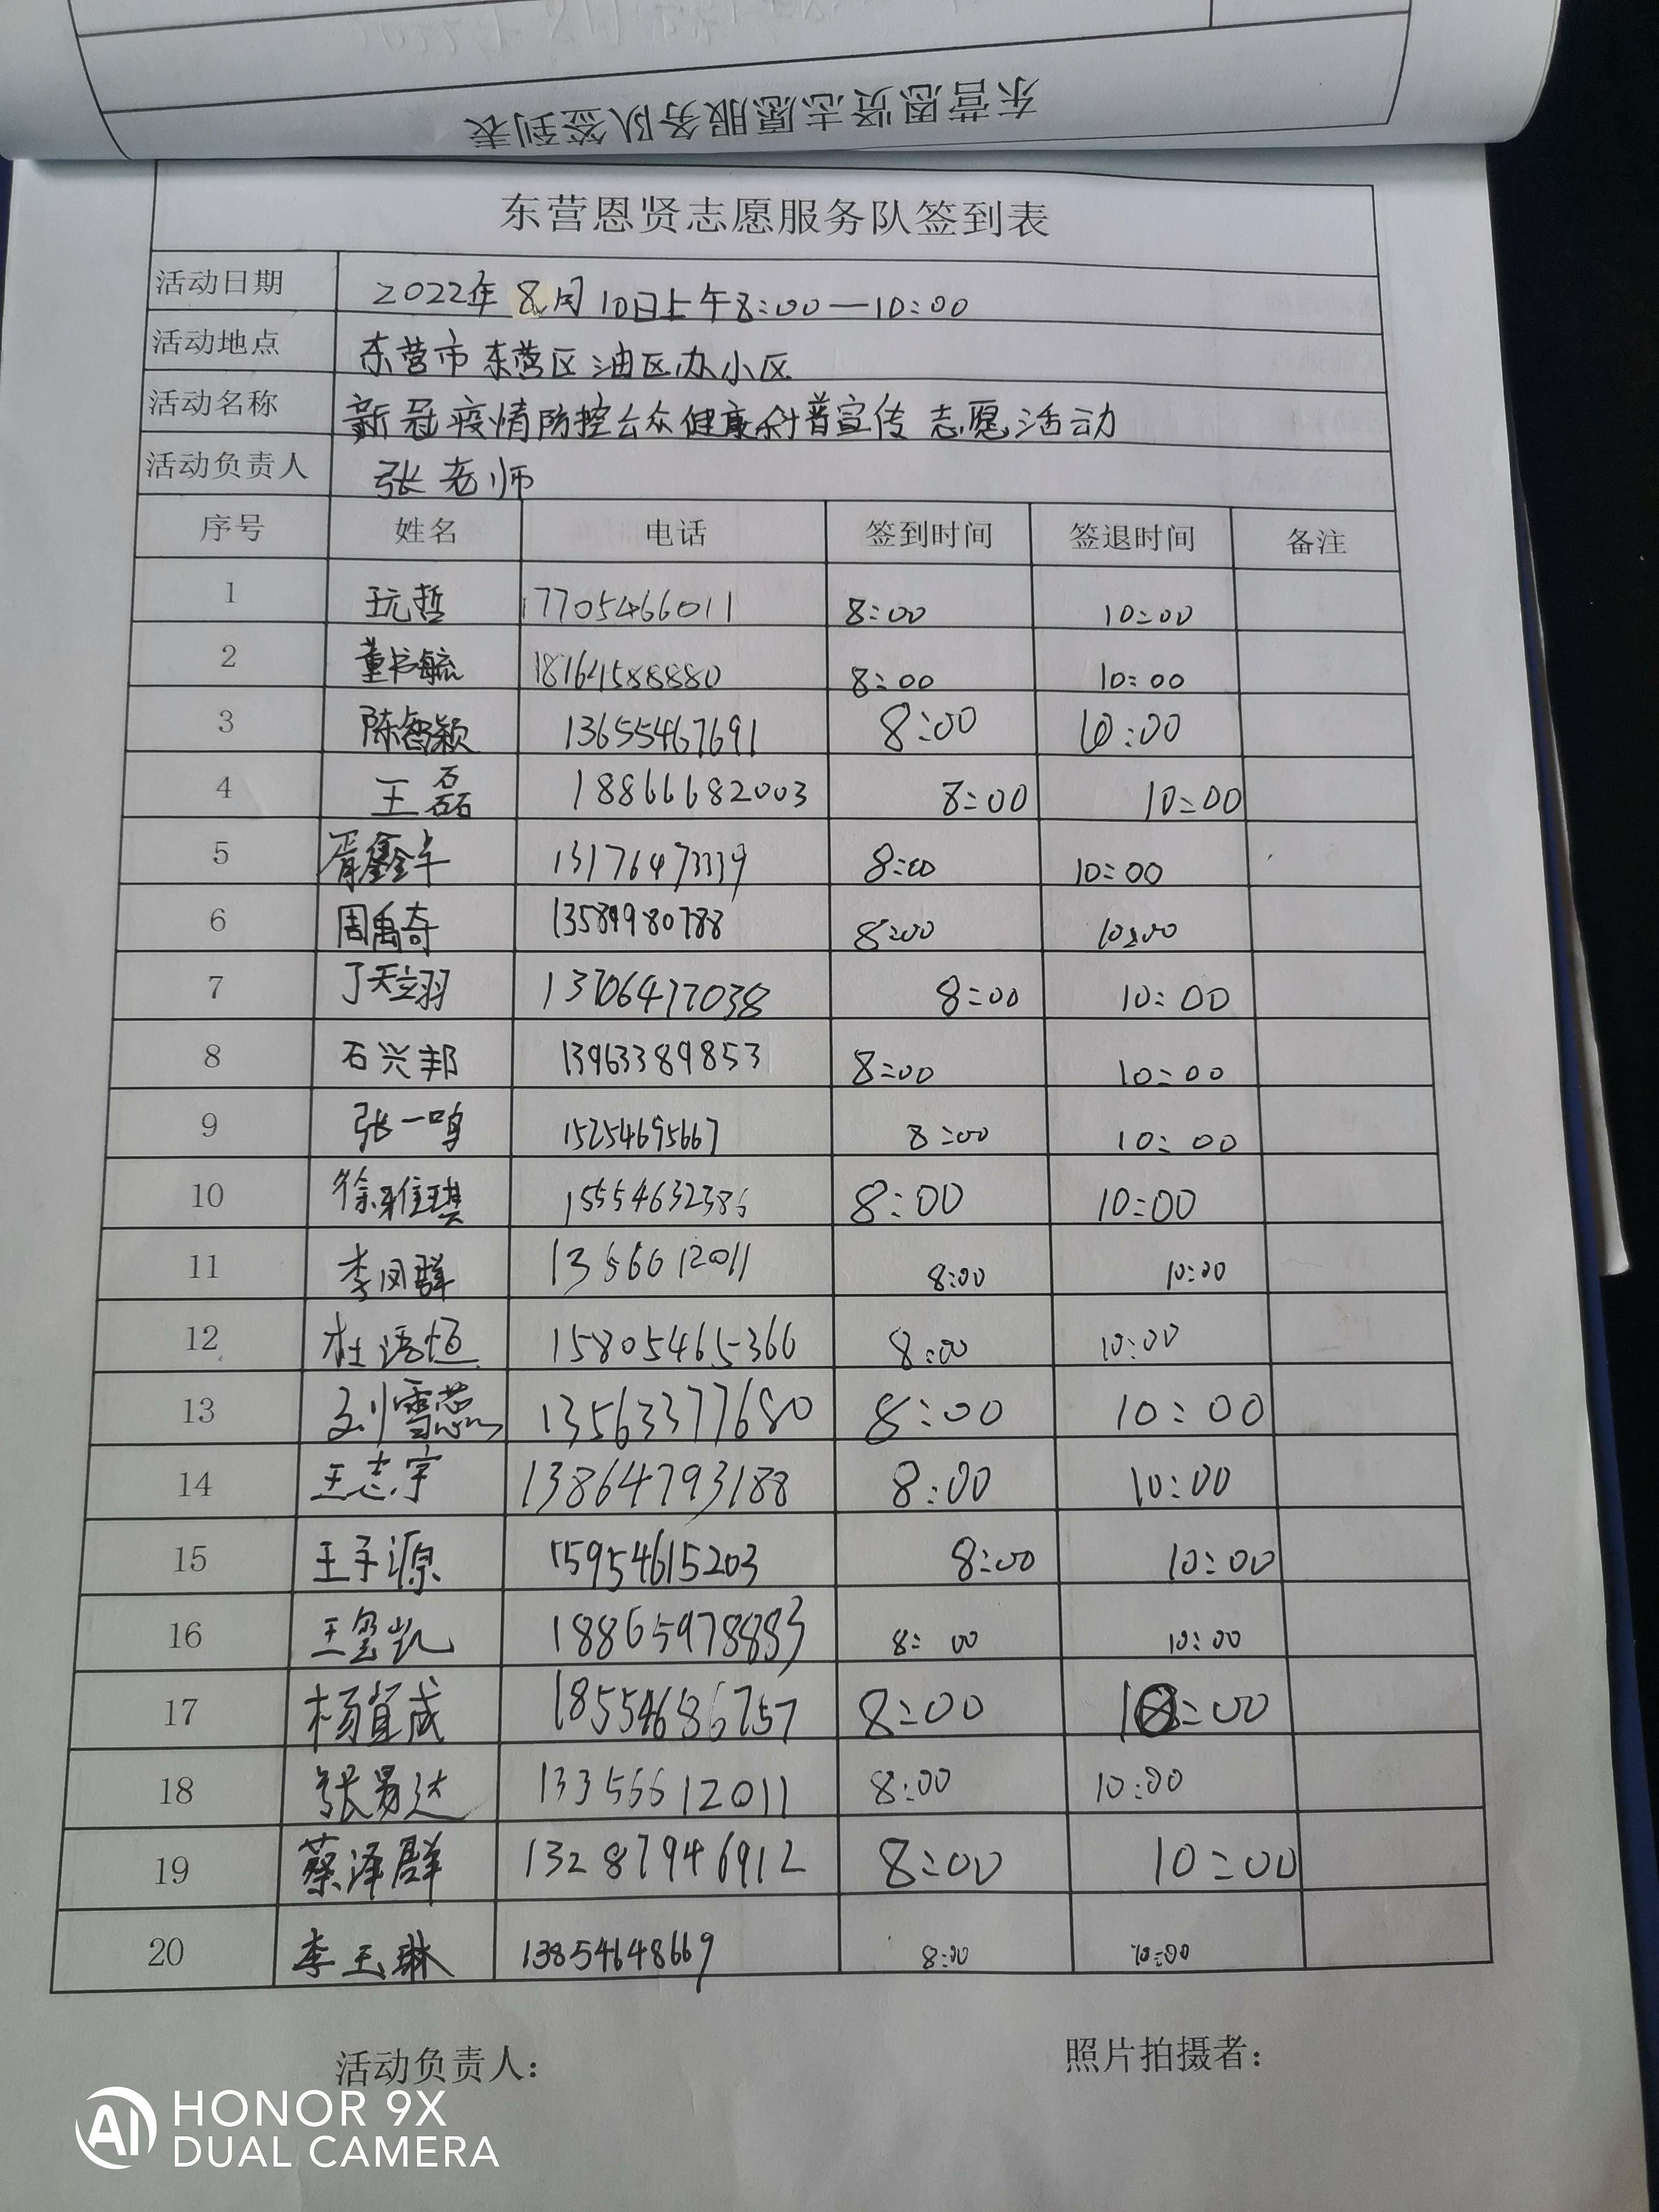 东营恩贤志愿服务队签到表
东营恩贤志愿服务队签到表
活动日期 2022年8月10日上午8:00—10:00
活动地点 东营市东营区油区办小区
活动名称 新冠疫情防控公众健康科普宣传志愿活动
活动负责人 张老师
序号 姓名 电话 签到时间 签退时间 备注
1 17705466011 8:00 10:00
2 董书毓 18764588880 8:00 10:00
3 陈智颖 13655467691 8:00 10:00
4 王磊 18866682003 8:00 10:00
5 胥鑫卓 13176473339 8:00 10:00
6 周禹奇 13589980788 8:00 10:00
7 丁天翊 13706477038 8:00 10:00
8 石兴邦 13963389853 8:00 10:00
9 张一鸣 15254695667 8:00 10:00
10 徐雅琪 15554632386 8:00 10:00
11 李凤群 13566012011 8:00 10:00
12 杜语恒 15805465366 8:00 10:00
13 刘雪蕊 13563377680 8:00 10:00
14 王志宇 13864793188 8:00 10:00
15 王子源 15954615203 8:00 10:00
16 王玺凯 18865978883 8:00 10:00
17 杨宜成 18554686757 8:00 10:00
18 张易达 13356612011 8:00 10:00
19 蔡泽群 13287946912 8:00 10:00
20 李玉琳 13854648669 8:00 10:00
活动负责人： 照片拍摄者：
AI HONOR 9X
DUAL CAMERA